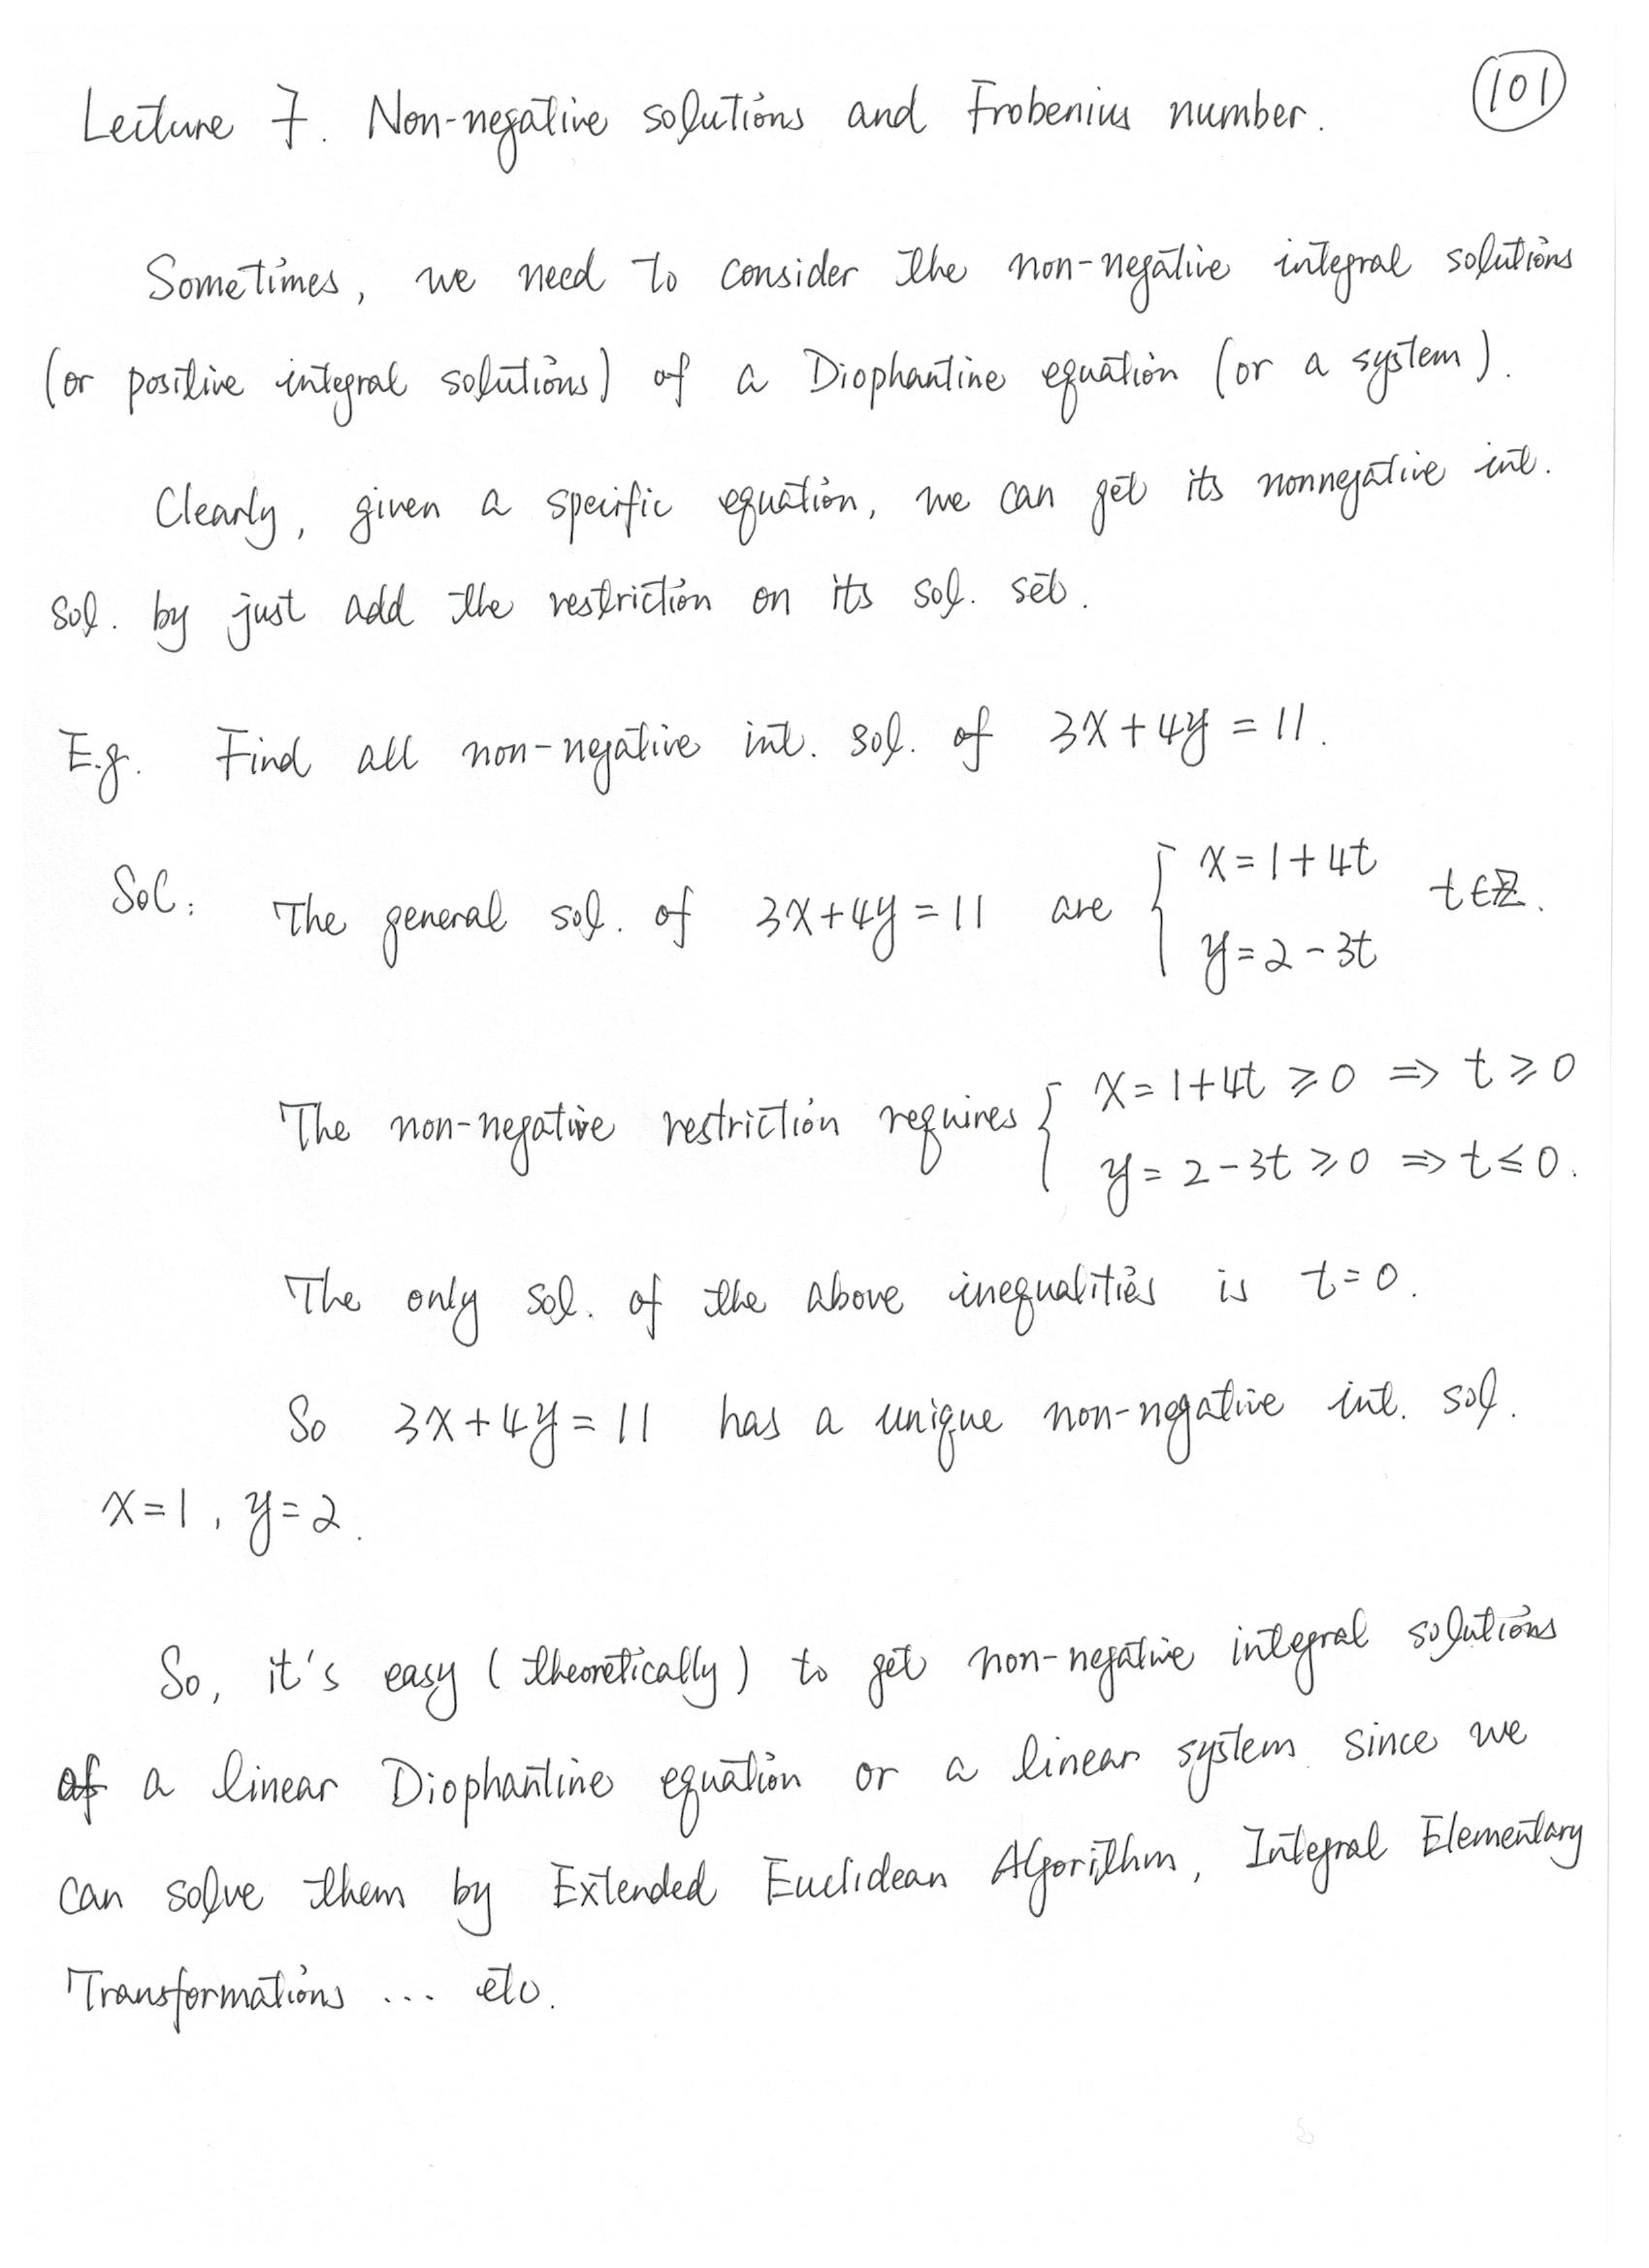 Lecture 7. Non-negative solutions and Frobenius number.
101
Sometimes, we need to consider the non-negative integral solutions
(or positive integral solutions) of a Diophantine equation (or a system).
Clearly, given a specific equation, we can get its nonnegative int.
sol. by just add the restriction on its sol. set.
E.g. Find all non-negative int. sol. of 3x+4y=11.
Sol: The general sol. of 3x+4y=11 are { x=1+4t
y=2-3t t∈ℤ.
The non-negative restriction requires { x=1+4t ⩾0 ⇒ t⩾0
y=2-3t⩾0 ⇒ t≤0.
The only sol. of the above inequalities is t=0.
So 3x+4y=11 has a unique non-negative int. sol.
x=1, y=2.
So, it's easy (theoretically) to get non-negative integral solutions
of a linear Diophantine equation or a linear system since we
can solve them by Extended Euclidean Algorithm, Integral Elementary
Transformations ... etc.